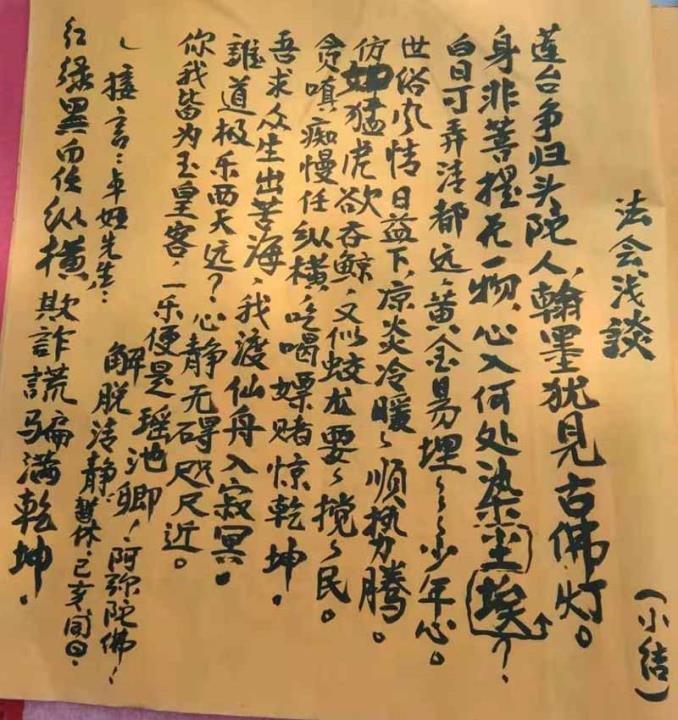 法会浅谈
(小结)
莲台争归头陀人,翰墨犹见古佛灯。
身非菩提无一物,心入何处染尘埃?
白日可弄清都远,黄金易埋~~~少年心。
世俗风情日益下,凉炎冷暖~顺势腾。
仿如猛虎欲吞鲸,又似蛟龙要~搅~民。
贪嗔痴慢任纵横,吃喝嫖赌惊乾坤。
吾求众生出苦海,我渡仙舟入寂冥。
誰道极乐西天远?心静无碍咫尺近。
你我皆为玉皇客,一乐便是瑶池卿!阿弥陀佛!
接言:卓娅先生: 解脱清静 暂休.己亥
红绿黑白任纵横,欺诈謊骗满乾坤。